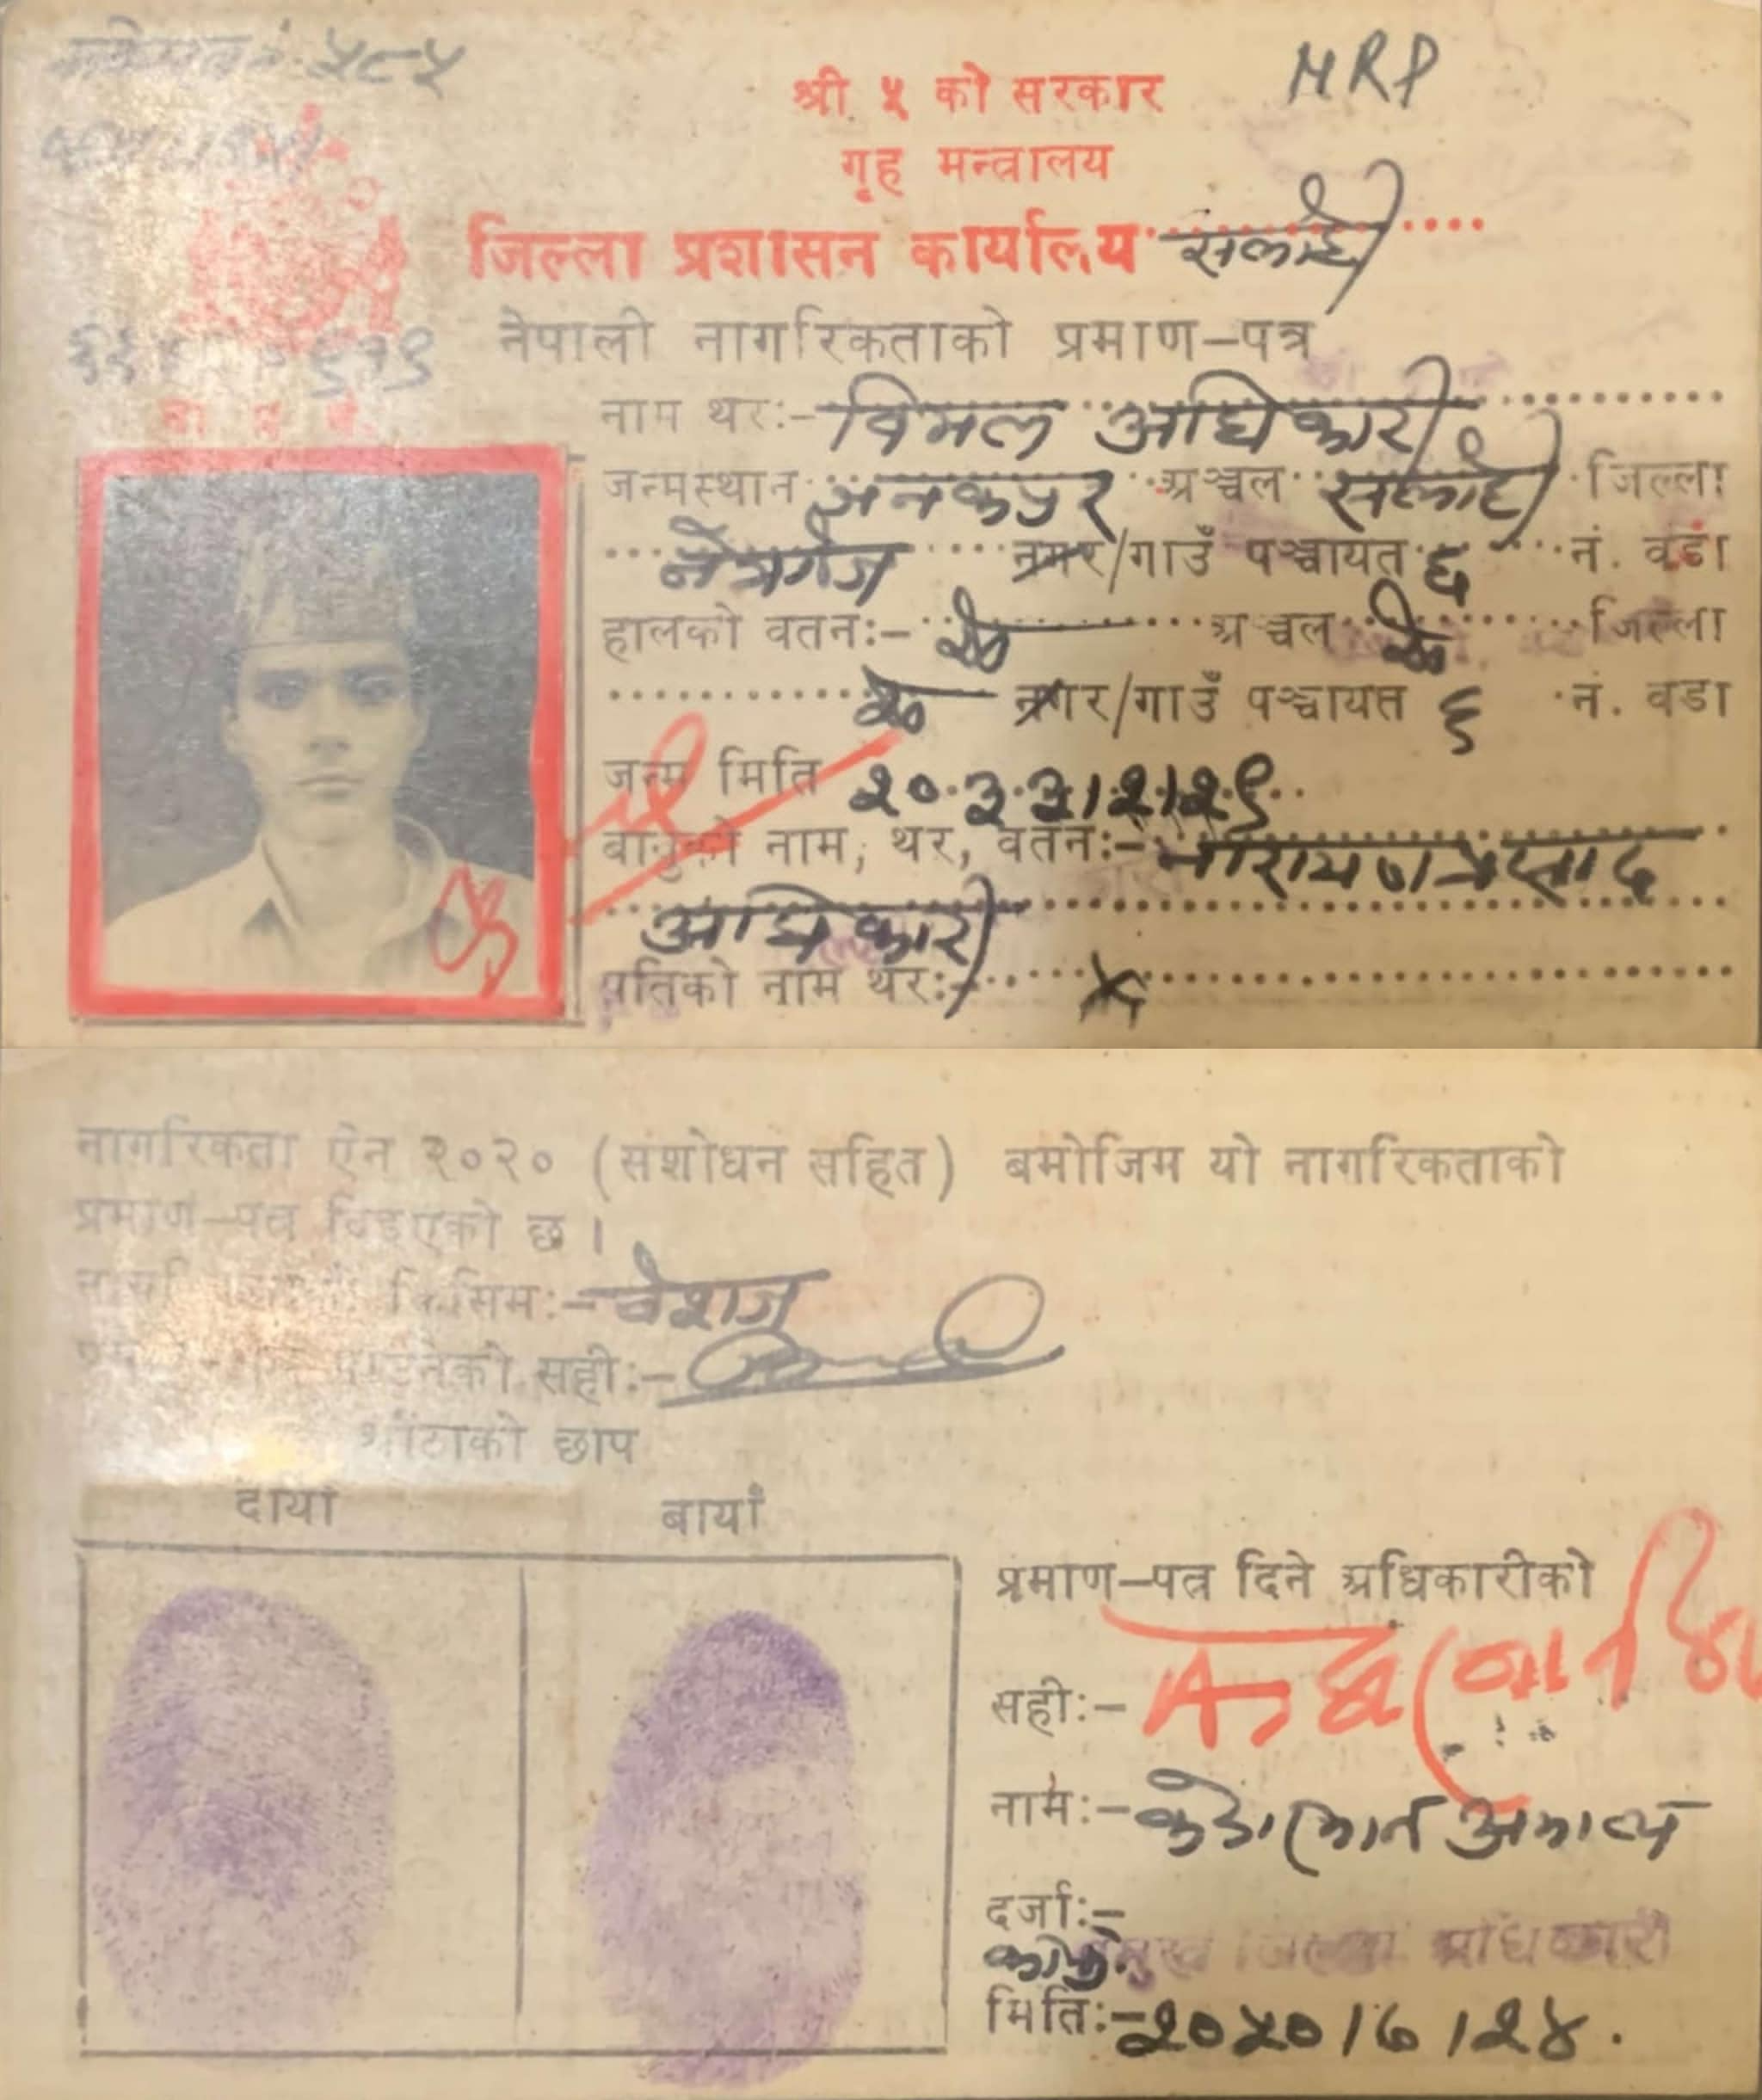 ५८५
श्री ५ को सरकार
MRP
गृह मन्त्रालय
जिल्ला प्रशासन कार्यालय सर्लाही
नेपाली नागरिकताको प्रमाण-पत्र
नाम थर:- विमल अधिकारी
जन्मस्थान जनकपुर अञ्चल सर्लाही जिल्ला
नेत्रगंज नगर/गाउँ पञ्चायत ६ नं. वडा
हालको वतन:- ऐ अञ्चल ऐ जिल्ला
ऐ नगर/गाउँ पञ्चायत ६ नं. वडा
जन्म मिति २०३३।२।२९
बाबुको नाम, थर, वतन:- नारायण प्रसाद
अधिकारी
पतिको नाम थर:- ×
नागरिकता ऐन २०२० (संशोधन सहित) बमोजिम यो नागरिकताको
प्रमाण-पत्र दिइएको छ।
किसिम:- वंशज
सही:-
औंठाको छाप
दायाँ बायाँ
प्रमाण-पत्र दिने अधिकारीको
सही:-
नाम:-
दर्जा:-
का.मु. प्रमुख जिल्ला अधिकारी
मिति:- २०५०।७।२४.